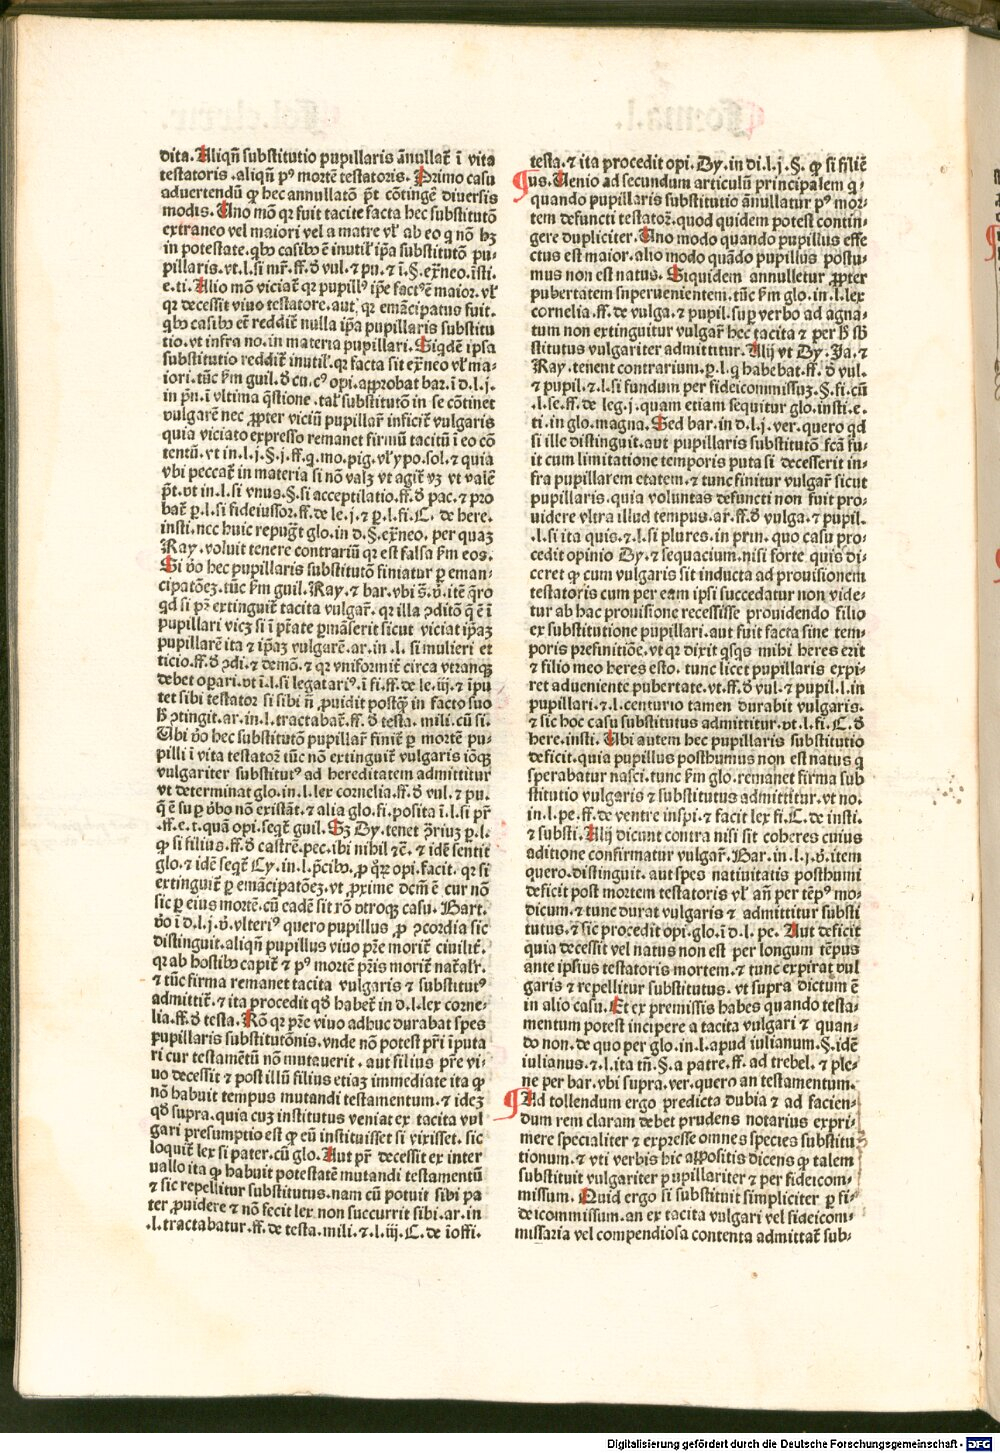 dita. Aliqñ substitutio pupillaris ānullat̄ ī vita
testatoris. aliqñ pꝰ mortē testatoris. Primo casu
aduertendū ꝙ hec annullatō p̄t cōtingē diuersis
modis. Uno mō qꝛ fuit tacite facta hec substitutō
extraneo vel maiori vel a matre vl̓ ab eo q nō hꝫ
in potestate. qbꝰ casibꝰ ē inutil̓ ip̄a substitutō pu⸗
pillaris. vt. l. si mr̄. ff. ð vul. ⁊ pu. ⁊ ī. §. ex̄neo. īsti
e. ti. Alio mō viciat̄ qꝛ pupillꝰ ip̄e factꝰ ē maior. vl̓
qꝛ decessit viuo testatore. aut qꝛ emācipatus fuit.
qbꝰ casibꝰ et̄ reddit̄ nulla ip̄a pupillaris substitu
tio. vt infra no. in materia pupillari. Siqdē ipsa
substitutio reddit̄ inutil̓. qꝛ facta sit ex̄neo vl̓ ma⸗
iori. tūc ẜm guil. ð cu. cꝰ opi. approbat bar. ī d. l. j.
in pñ. ī vltima q̄stione. tal̓ substitutōn in se cōtinet
vulgarē nec ꝓpter viciū pupillar̄ inficit̄ vulgaris
quia viciato expresso remanet firmū tacitū ī eo cō
tentū. vt in. l. j. §. j. ff. q. mo. pig. vl̓ ypo. sol. ⁊ quia
vbi peccat̄ in materia si nō valꝫ vt agit̄ vꝫ vt valē
p̄t. vt in. l. si vnus. §. si acceptilatio. ff. ð pac. ⁊ pro
bat̄ ꝑ. l. si fideiussor. ff. de le. j. ⁊ ꝑ. l. fi. C. de here.
insti. nec huic repugt̄ glo. in d. §. ex̄neo. per quaꝫ
Ray. voluit tenere contrariū qꝛ est falsa ẜm eos.
Si v̓o hec pupillaris substitutō finiatur ꝑ eman⸗
cipatōeꝫ. tūc ẜm guil. Ray. ⁊ bar. vbi s̄. v̓. itē q̄ro
qd si pꝛ̄ extinguit̄ tacita vulgar̄. qꝛ illa ꝯditō q̄ ē ī
pupillari vicꝫ si ī pt̄ate ꝑmāserit sicut viciat ip̄aꝫ
pupillarē ita ⁊ ip̄aꝫ vulgarē. ar. in. l. si mulieri et
ticio. ff. ð ꝯdi. ⁊ demō. ⁊ qꝛ vniformit̄ circa vtranqꝫ
debet opari. vt ī. l. si legatariꝰ. ī fi. ff. de le. iij. ⁊ īpu
tet sibi testator si sibi ñ ꝓuidit postqꝫ in facto suo
h̓ ꝯtingit. ar. in. l. tractabat̄. ff. ð testa. mili. cū si.
Ubi v̓o hec substitutō pupillar̄ finit̄ ꝑ mortē pu⸗
pilli ī vita testatoꝝ tūc nō extinguit̄ vulgaris iōqꝫ
vulgariter substitutꝰ ad hereditatem admittitur
vt determinat glo. in. l. lex cornelia. ff. ð vul. ⁊ pu.
q̄ ē suꝑ v̓bo nō existāt. ⁊ alia glo. fi. posita ī. l. si pr̄
.ff. e. t. quā opi. seqt̄ guil. Sꝫ Dy. tenet ꝯ̄riuꝫ ꝑ. l.
ꝙ si filius. ff. ð castrē. pec. ibi nihil ⁊c̄. ⁊ idē sentit
glo. ⁊ idē seqt̄ Cy. in. l. p̄cibꝰ. ꝓ qꝝ opi. facit. qꝛ si
extinguit̄ ꝑ emācipatōeꝫ. vt ꝓxime dcm̄ ē cur nō
sic ꝑ eius mortē. cū eadē sit rō vtroqꝫ casu. Bart.
v̓o ī d. l. j. v̓. vlteriꝰ quero pupillus. ꝓ ꝯcordia sic
distinguit. aliqñ pupillus viuo pr̄e morit̄ ciuilit̄.
qꝛ ab hostibꝰ capit̄ ⁊ pꝰ mortē pr̄is morit̄ nat̄alr̄.
⁊ tūc firma remanet tacita vulgaris ⁊ substitutꝰ
admittit̄. ⁊ ita procedit qd̓ habet̄ in d. l. lex corne⸗
lia. ff. ð testa. Rō qꝛ pr̄e viuo adhuc durabat spes
pupillaris substitutōnis. vnde nō potest pr̄i īputa
ri cur testamētū nō mutauerit. aut filius pr̄e vi⸗
uo decessit ⁊ post illū filius etiaꝫ immediate ita ꝙ
nō habuit tempus mutandi testamentum. ⁊ ideꝫ
qd̓ supra. quia cuꝫ institutus veniat ex tacita vul
gari presumptio est ꝙ eū instituisset si vixisset. sic
loquit̄ lex si pater. cū glo. Aut pr̄ decessit ex inter
uallo ita ꝙ habuit potestatē mutandi testamentū
⁊ sic repellitur substitutus. nam cū potuit sibi pa
ter ꝓuidere ⁊ nō fecit lex non succurrit sibi. ar. in
.l. tractabatur. ff. de testa. mili. ⁊. l. iij. C. de īoffi.
testa. ⁊ ita procedit opi. Dy. in di. l. j. §. ꝙ si filiē
us. Uenio ad secundum articulū principalem q⸗
quando pupillaris substitutio ānullatur pꝰ mor⸗
tem defuncti testatoꝝ. quod quidem potest contin⸗
gere dupliciter. Uno modo quando pupillus effe
ctus est maior. alio modo quādo pupillus postu⸗
mus non est natus. Siquidem annulletur ꝓpter
pubertatem superuenientem. tūc ẜm glo. in. l. lex
cornelia. ff. de vulga. ⁊ pupil. suꝑ verbo ad agna⸗
tum non extinguitur vulgar̄ hec tacita ⁊ per h̓ sb̄
stitutus vulgariter admittitur. Alij vt Dy. Ja. ⁊
Ray. tenent contrarium. ꝑ. l. q habebat. ff. ð vul.
⁊ pupil. ⁊. l. si fundum per fideicommissuꝫ. §. fi. cū
.l. se. ff. de leg. j. quam etiam sequitur glo. insti. e.
ti. in glo. magna. Sed bar. in d. l. j. ver. quero qd
si ille distinguit. aut pupillaris substitutō fcā fu⸗
it cum limitatione temporis puta si decesserit in⸗
fra pupillarem etatem. ⁊ tunc finitur vulgar̄ sicut
pupillaris. quia voluntas defuncti non fuit pro⸗
uidere vltra illud tempus. ar. ff. ð vulga. ⁊ pupil.
.l. si ita quis. ⁊. l. si plures. in prin. quo casu pro⸗
cedit opinio Dy. ⁊ sequacium. nisi forte quis di⸗
ceret ꝙ cum vulgaris sit inducta ad prouisionem
testatoris cum per eam ipsi succedatur non vide⸗
tur ab hac prouisione recessisse prouidendo filio
ex substitutione pupillari. aut fuit facta sine tem⸗
poris prefinitiōe. vt qꝛ dixit qsqs mihi heres erit
⁊ filio meo heres esto. tunc licet pupillaris expi⸗
ret adueniente pubertate. vt. ff. ð vul. ⁊ pupil. l. in
pupillari. ⁊. l. centurio tamen durabit vulgaris.
⁊ sic hoc casu substitutus admittitur. vt. l. fi. C. ð
here. insti. Ubi autem hec pupillaris substitutio
deficit. quia pupillus posthumus non est natus q
sperabatur nasci. tunc ẜm glo. remanet firma sub
stitutio vulgaris ⁊ substitutus admittitur. vt no.
in. l. pe. ff. de ventre inspi. ⁊ facit lex fi. C. de insti.
⁊ substi. Alij dicunt contra nisi sit coheres cuius
aditione confirmatur vulgar̄. Bar. in. l. j. v̓. item
quero. distinguit. aut spes natiuitatis posthumi
deficit post mortem testatoris vl̓ añ per tēpꝰ mo⸗
dicum. ⁊ tunc durat vulgaris ⁊ admittitur substi
tutus. ⁊ sic procedit opi. glo. ī d. l. pe. Aut deficit
quia decessit vel natus non est per longum tēpus
ante ipsius testatoris mortem. ⁊ tunc expirat vul
garis ⁊ repellitur substitutus. vt supra dictum ē
in alio casu. Et ex premissis habes quando testa⸗
mentum potest incipere a tacita vulgari ⁊ quan⸗
do non. de quo per glo. in. l. apud iulianum. §. idē
iulianus. ⁊. l. ita tñ. §. a patre. ff. ad trebel. ⁊ ple⸗
ne per bar. vbi supra. ver. quero an testamentum.
Ad tollendum ergo predicta dubia ⁊ ad facien⸗
dum rem claram debet prudens notarius expri⸗
mere specialiter ⁊ expresse omnes species substitu
tionum. ⁊ vti verbis hic appositis dicens ꝙ talem
substituit vulgariter pupillariter ⁊ per fideicom⸗
missum. Quid ergo si substituit simpliciter ꝑ fi⸗
deicommissum. an ex tacita vulgari vel fideicom⸗
missaria vel compendiosa contenta admittat̄ sub⸗
Digitalisierung gefördert durch die Deutsche Forschungsgemeinschaft - DFG